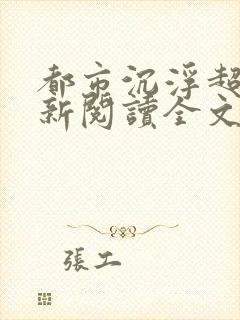 都市沉浮超
新閱讀全文
張工